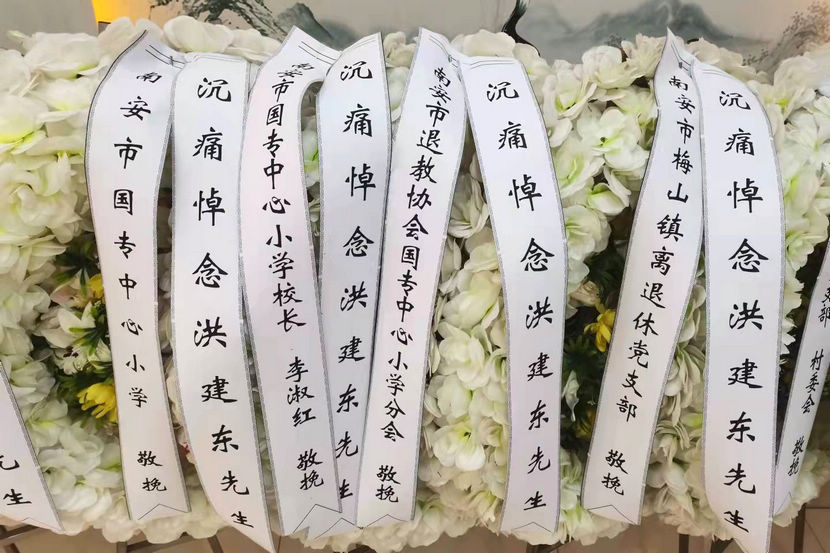 先生
南安市国专中心小学 敬挽
沉痛悼念洪建东先生
南安市国专中心小学校长 李淑红 敬挽
沉痛悼念洪建东先生
南安市退教协会国专中心小学分会 敬挽
沉痛悼念洪建东先生
南安市梅山镇离退休党支部 敬挽
沉痛悼念洪建东先生
支部 村委会 敬挽